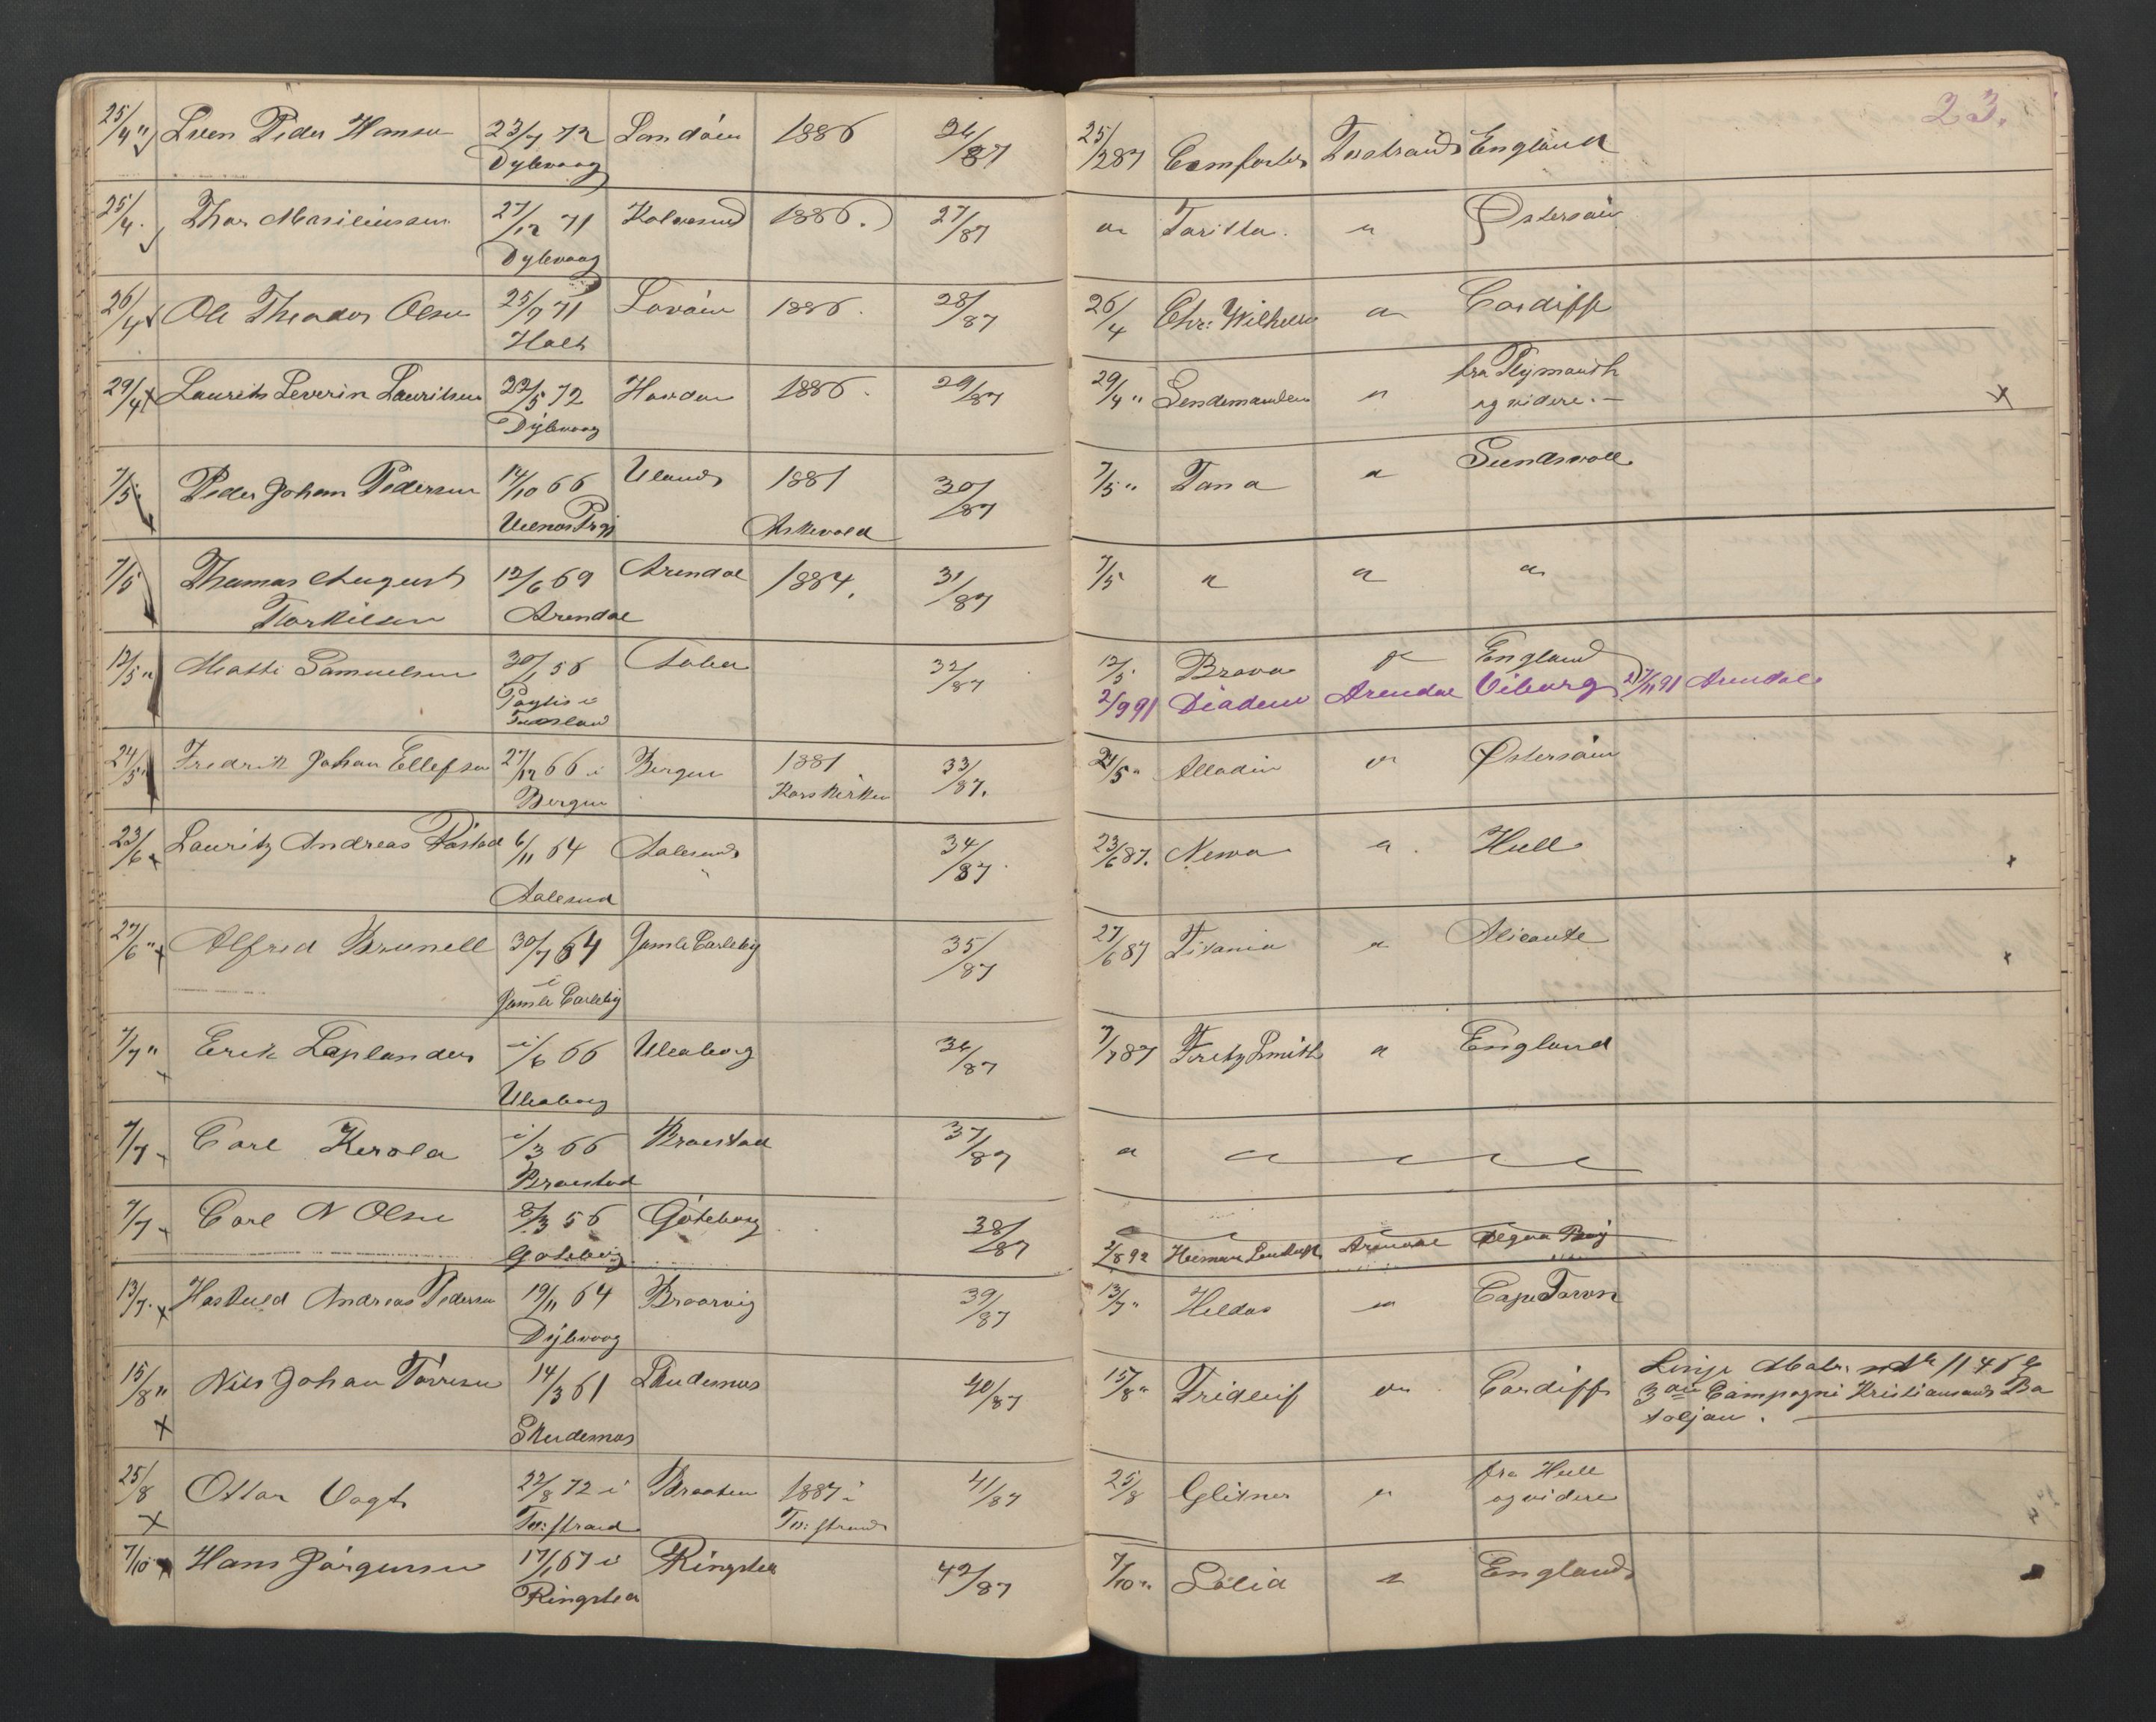 23.
25/4 " Sven Peder Hansen 23/7 72 Sandöen 1886 26/87 25/2 87 Comforter Tvestrand England
Dybvaag
25/4. Thor Mariliussen 27/12 71 Kalvesund 1886. 27/87 " Taritta. " Østersöen
Dybvaag
26/4 Ole Theodor Olsen 25/9 71 Lovöen 1886. 28/87 26/4 Chr: Wilhelm " Cardiff
Holt
29/4 Laurits Severin Lauritsen 22/5 72 Havden 1886. 29/87 29/4 " Sendemanden " fra Plymouth
Dybvaag og videre. —
7/5. Peder Johan Pedersen 14/10 66 Uland 1881 30/87 7/5 " Tana " Sundsvall
Askevold
7/5 Thomas August 12/6 69 Arendal 1884. 31/87 7/5 " " "
Torkilsen Arendal
12/5 " Matti Samuelsen 30/1 56 32/87 12/5. Brava " England
2/9 91 Diadem Arendal Viborg 91 Arendal
24/5 " Fredrik Johan Ellefsen 27/12 66 i Bergen 1881 33/87. 24/5 " Alladin " Østersöen
Bergen Korskirken
23/6 Lauritz Andreas Råstad 6/11 64 Aalesund 34/87 23/6 87. Newa " Hull
Aalesund
27/6 " Alfred Brunell 30/7 64 Gamle Carleby 35/87 27/6 87 Titania " Alicante
i
Gamle Carleby
7/7 " Erik Laplander -/6 66 Uleaborg 36/87 7/7 87 Fritz Smith " England
Uleaborg
7/7 Carl Kerola -/3 66 Braestad 37/87 " " " "
Braestad
7/7 Carl N Olsen 8/3 56 Göteborg 38/87
Göteborg 2/8 92 Arendal
13/7. Haskuld Andreas Pedersen 19/11 64 Braarvig 39/87 13/7 " Heldos " Cape Town
Dybvaag
15/8 " Nils Johan Törresen 14/3 61 Skudesnes 40/87 15/8 " Fridleif " Cardiff Linje
Skudesnes 3die Campagni Kristiansands Ba
taljon. —
25/8 Ottar Vogt 22/8 72 i Braaten 1887 i 41/87 25/8 Glitner " fra Hull
Tv: strand Tv: strand og videre
7/10 Hans Jörgensen 17/1 67 i Ringsted 42/87 7/10 " Lölia " England
Ringsted